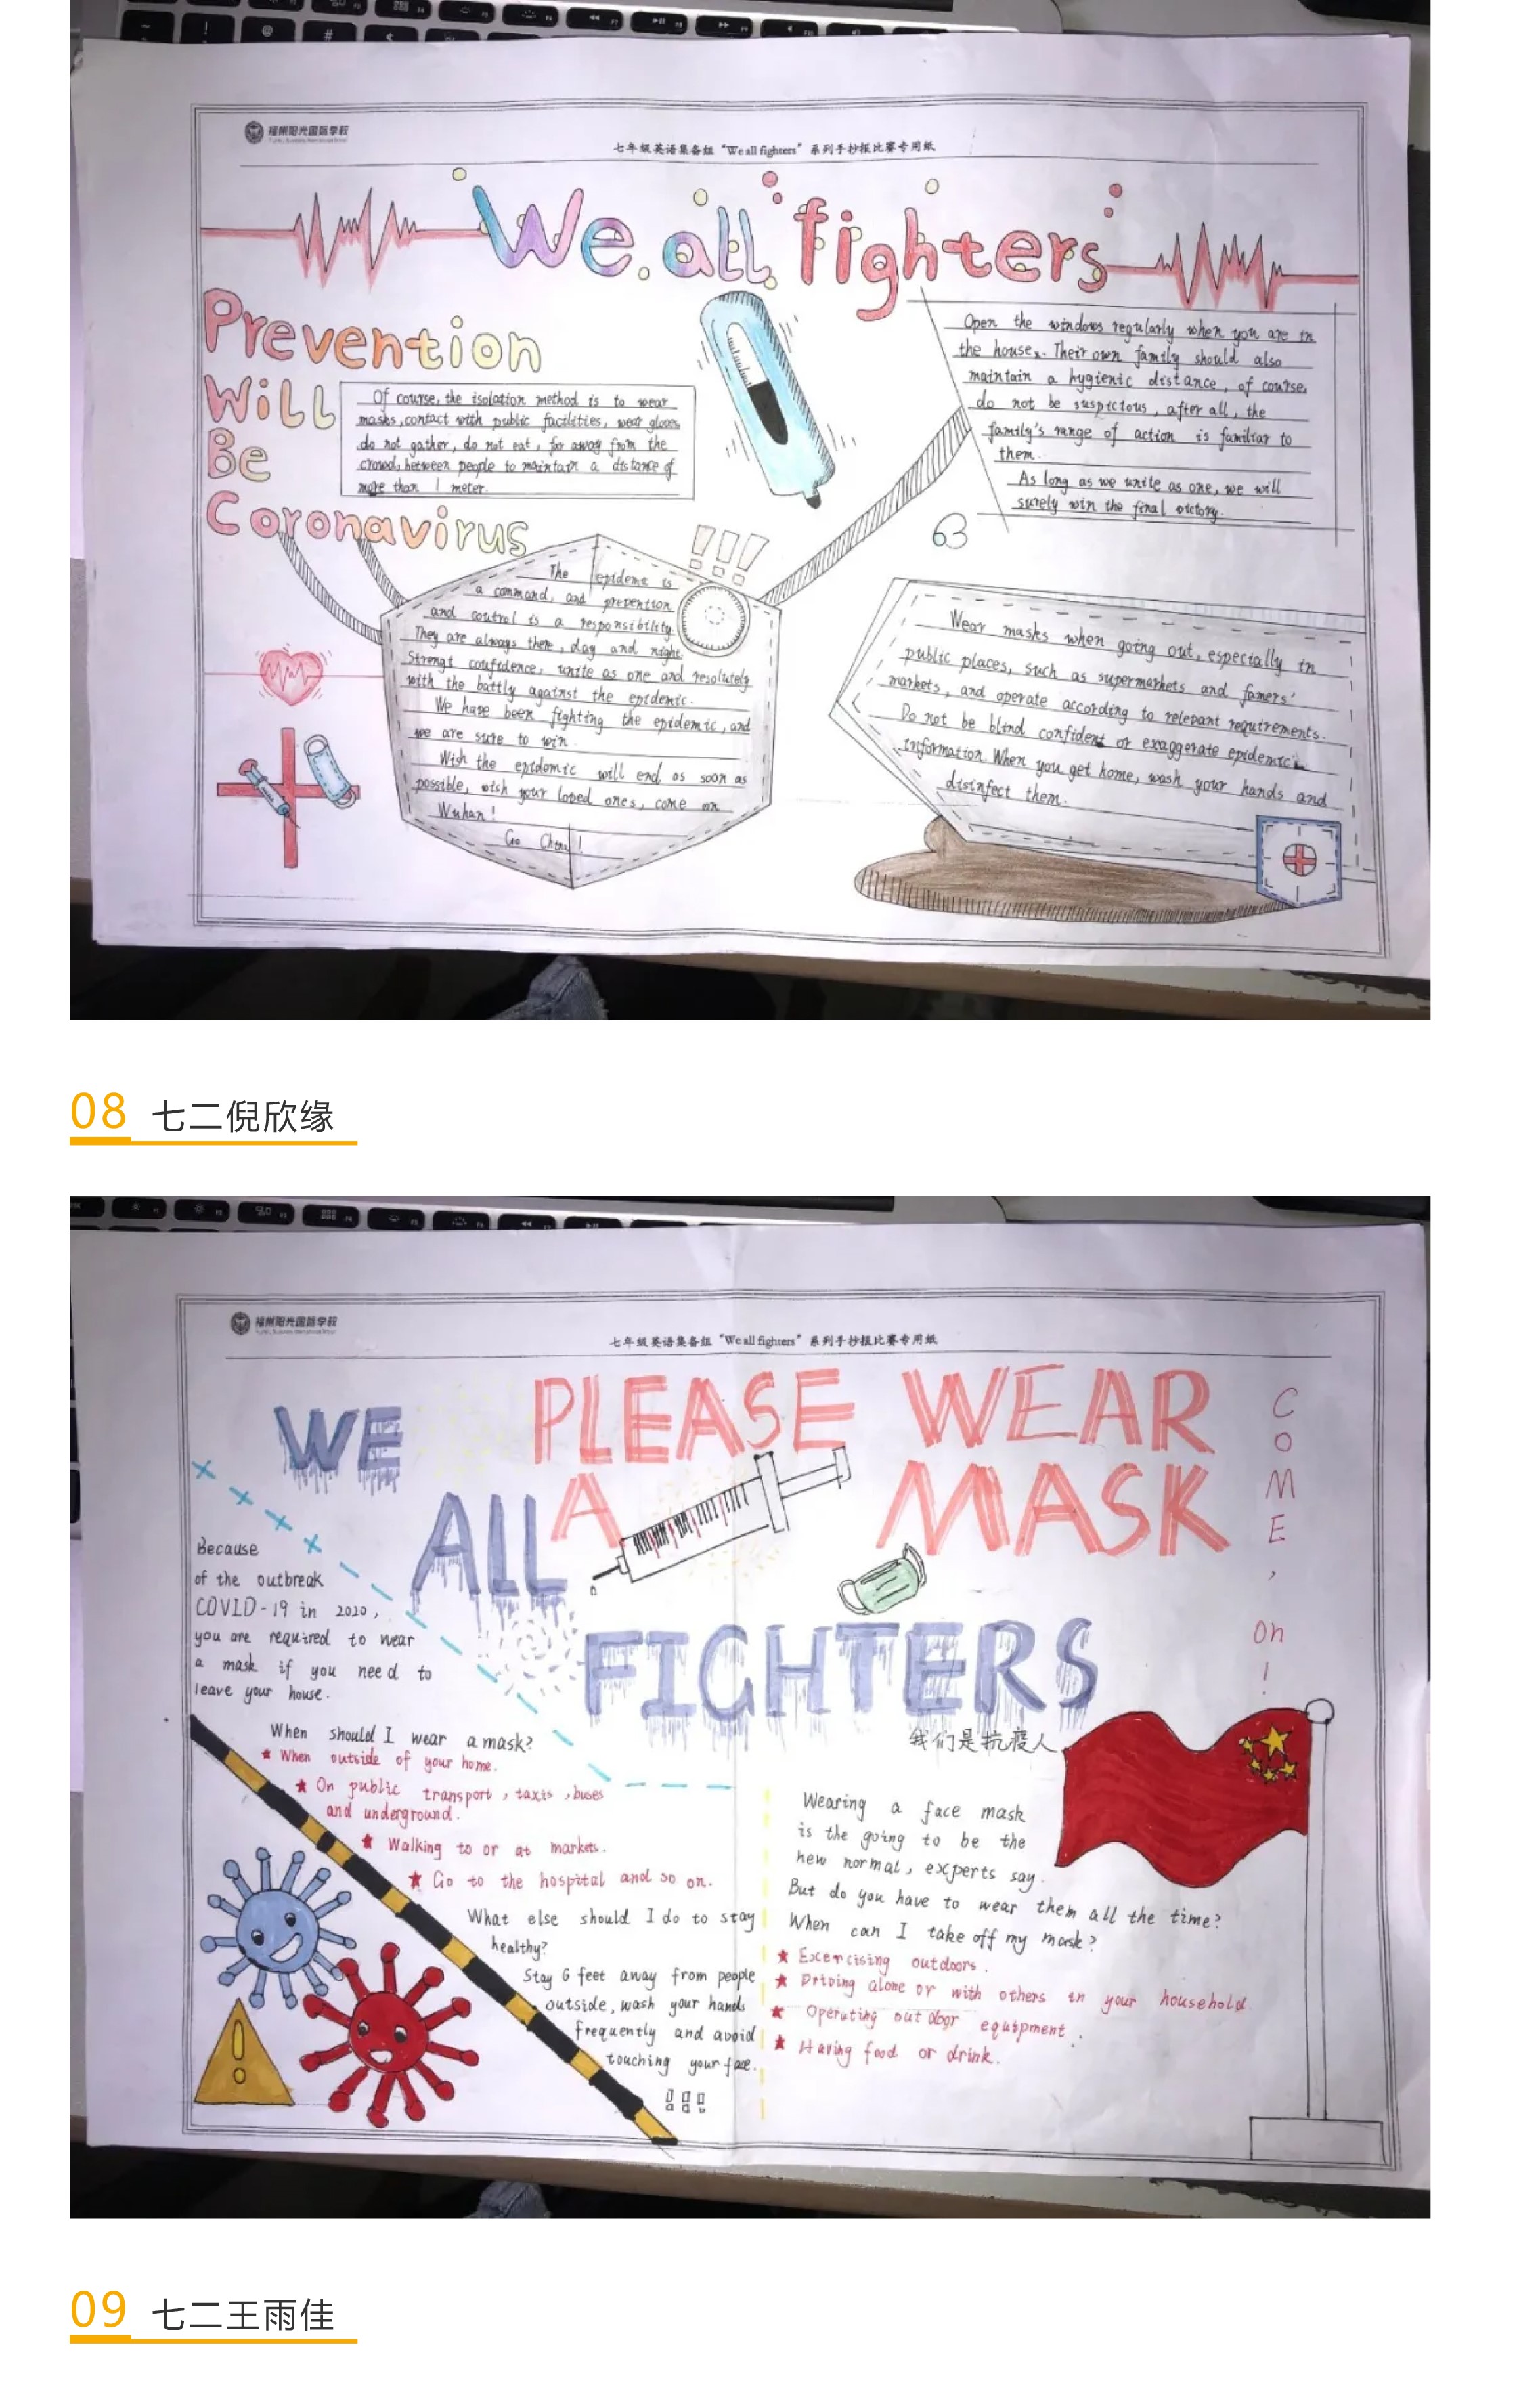 福州阳光国际学校
七年级英语集备组 “We all fighters” 系列手抄报比赛专用纸
We all fighters
Prevention
Will
Be
Coronavirus
Of course, the isolation method is to wear
masks, contact with public facilities, wear gloves
do not gather, do not eat, far away from the
crowd, between people to maintain a distance of
more than 1 meter.
Open the windows regularly when you are in
the house. Their own family should also
maintain a hygienic distance, of course,
do not be suspicious, after all, the
family's range of action is familiar to
them.
As long as we unite as one, we will
surely win the final victory.
!!!
The epidemic is
a command, and prevention
and control is a responsibility.
They are always there, day and night.
Strengt confidence, unite as one and resolutely
with the battly against the epidemic.
We have been fighting the epidemic, and
we are sure to win.
Wish the epidemic will end as soon as
possible, wish your loved ones, come on
Wuhan!
Go China!
Wear masks when going out, especially in
public places, such as supermarkets and famers'
markets, and operate according to relevant requirements.
Do not be blind confident or exaggerate epidemic
information. When you get home, wash your hands and
disinfect them.
08 七二倪欣缘
福州阳光国际学校
七年级英语集备组 “We all fighters” 系列手抄报比赛专用纸
WE
ALL
FIGHTERS
PLEASE WEAR
A MASK
COME, on!
我们是抗疫人
Because
of the outbreak
COVID-19 in 2020,
you are required to wear
a mask if you need to
leave your house.
When should I wear a mask?
★ When outside of your home.
★ On public transport, taxis, buses
and underground.
★ Walking to or at markets.
★ Go to the hospital and so on.
What else should I do to stay
healthy?
Stay 6 feet away from people
outside, wash your hands
frequently and avoid
touching your face.
!!!
Wearing a face mask
is the going to be the
new normal, experts say.
But do you have to wear them all the time?
When can I take off my mask?
★ Excercising outdoors.
★ Driving alone or with others in your household
★ Operating outdoor equipment.
★ Having food or drink.
09 七二王雨佳